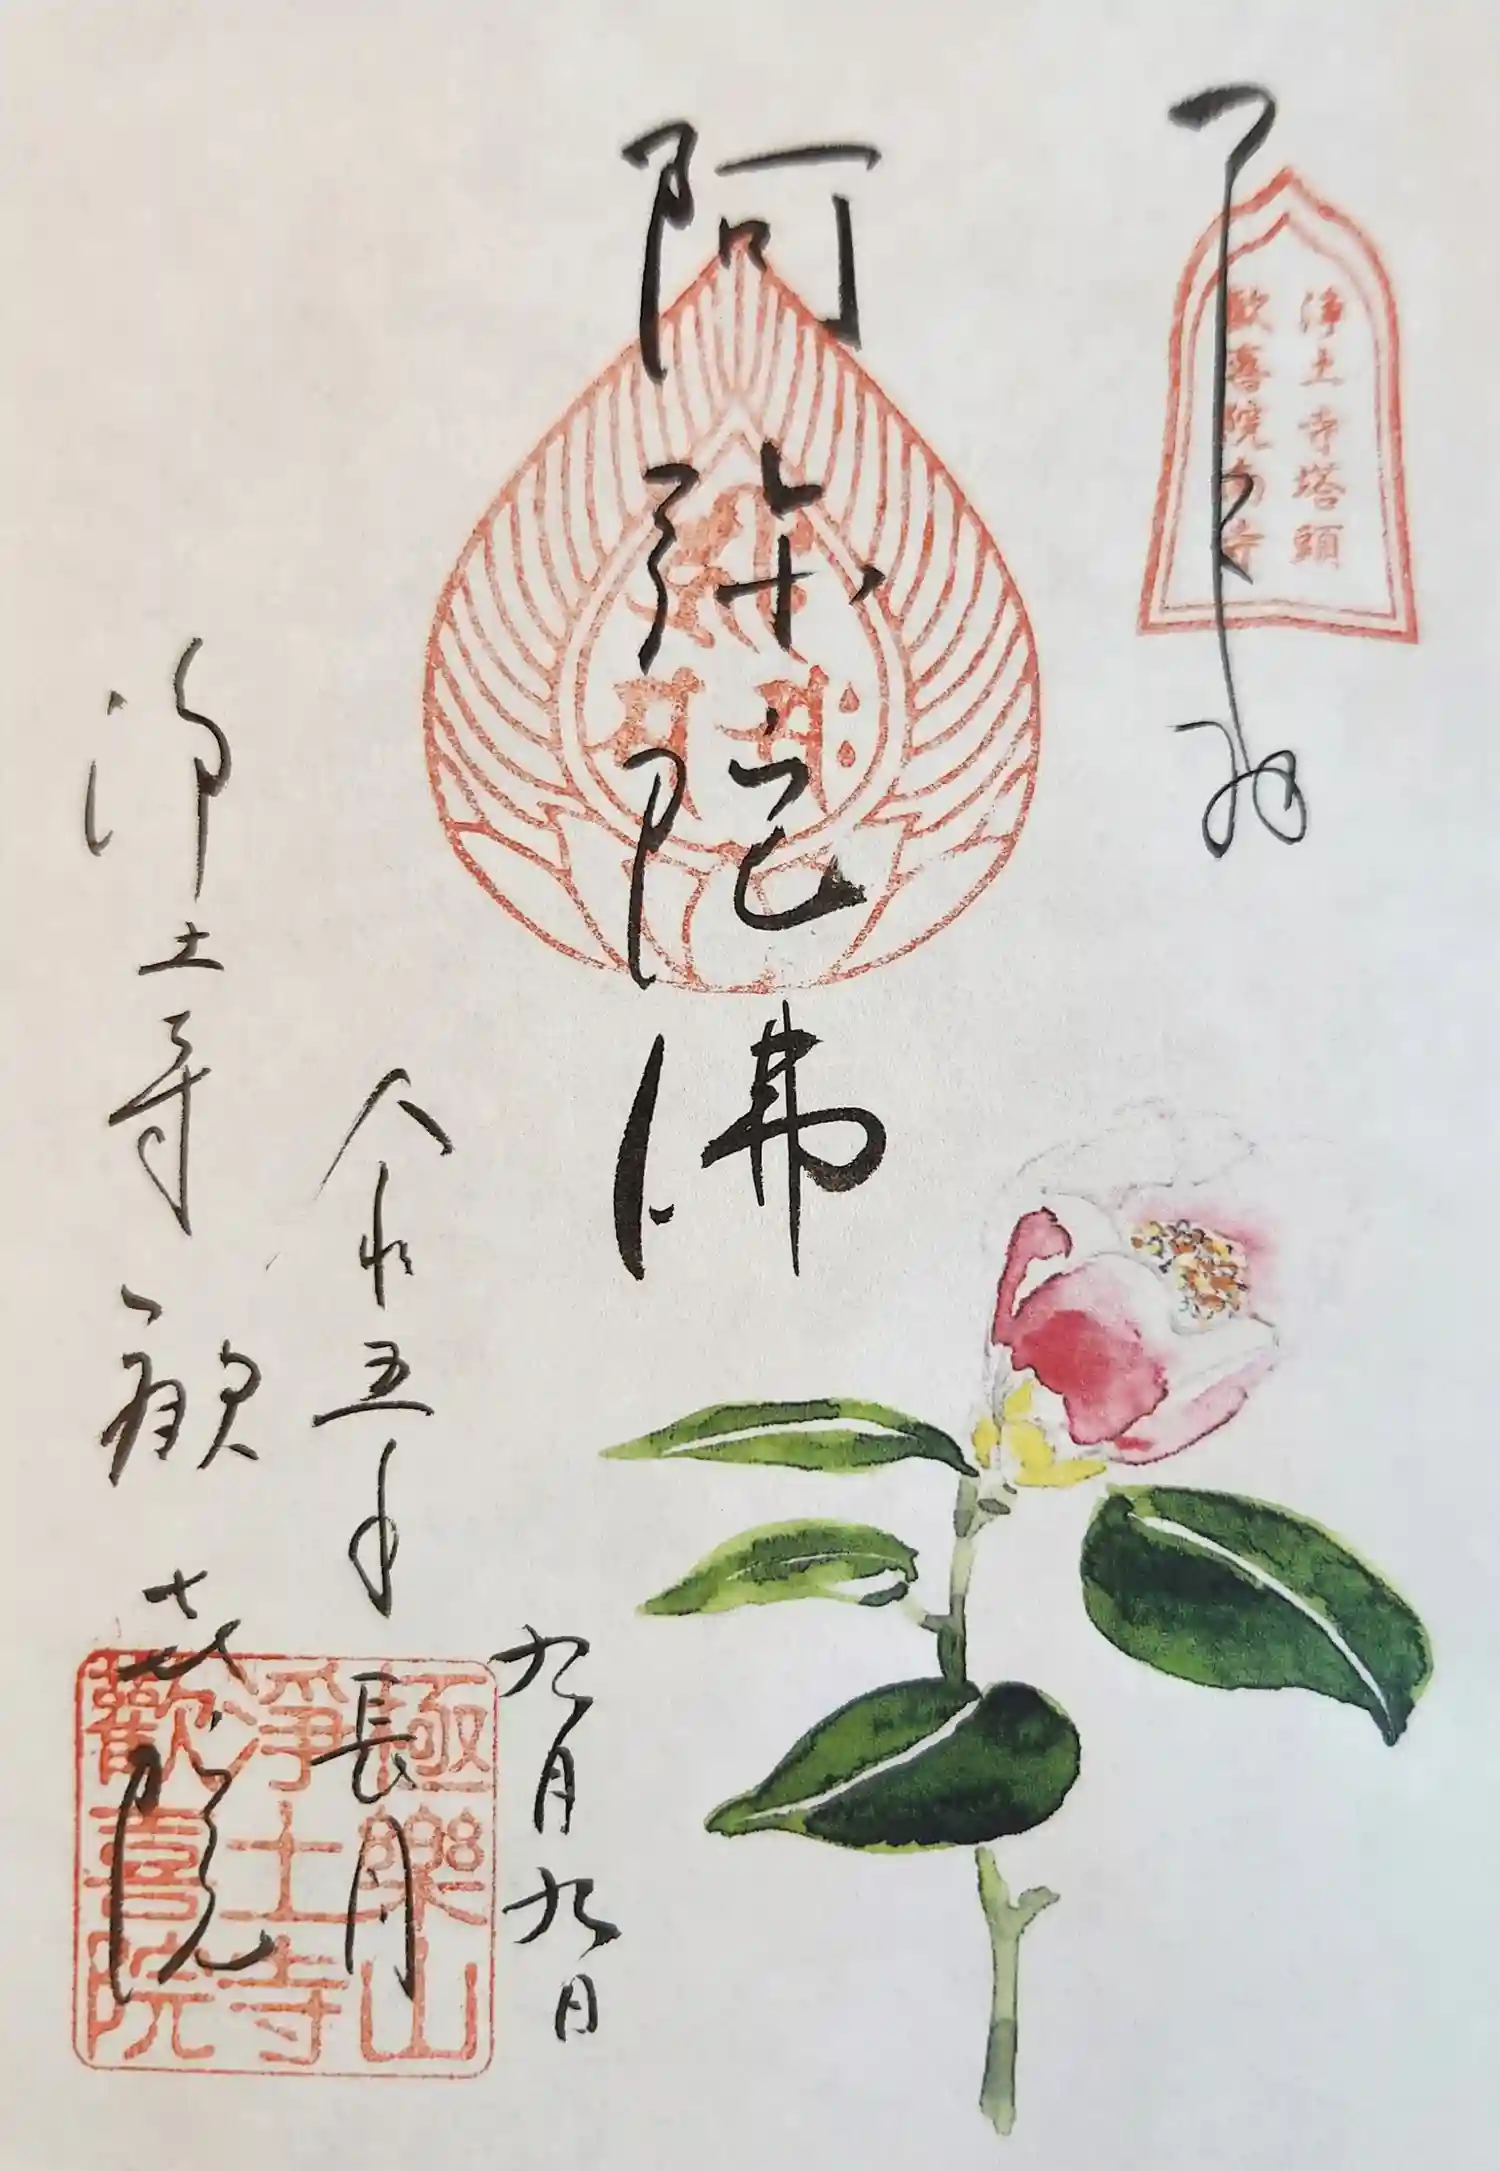 奉拝
浄土寺塔頭
歓喜院南寺
阿弥陀佛
九月九日
令和五年長月
浄土寺歓喜院
極樂山
淨土寺
歡喜院